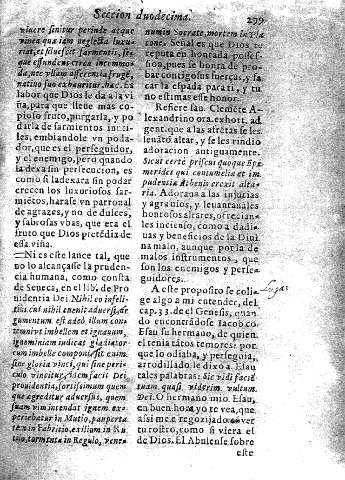 Seccion duodecima.
299
vivere sinitur perinde atque
vinea quæ iam neglecta luxu-
riat, et silvescit sarmentis, se-
que effundens circa incommo-
da, nec vllam afferens frugē,
natiuo suo exhauritur. hac. Es
labor que Dios le da a la vi
ña, para que lleue mas co-
pioso fruto, purgarla, y po
darla de sarmientos inuti-
les, embiandole vn poda-
dor, que es el perseguidor,
y el enemigo, pero quando
la dexa sin persecucion, es
como si la dexara sin podar
crecen los luxuriosos sar-
miētos, harase vn parronal
de agrazes, y no de dulces,
y sabrosas vbas, que era el
fruto que Dios pretēdia de
esta viña.
Ni es este lance tal, que
no lo alcançasse la pruden-
cia humana, como consta
de Seneca, en el lib. de Pro
uidentia Dei. Nihil eo infeli-
cius, cui nihil euenit aduersi,
argumentum est
imbellem et ignauum,
ignominiam iudicat gladiator
cum imbelle componi, et
sine gloria vinci, qui sine peri-
culo vincitur. Idem facit Dei
prouidentia, fortissimum quem
que agreditur aduersus, quem
suam vim intendat ignem ex-
periebatur in Mutio, pauperta
tem in Fabritio, exilium in Ru
tilio, tormēta in Regulo, vene-
num in Socrate, mortem in
tone. Señal es que Dios te
reputa en honrada posses-
sion, pues se honra de pro-
bar contigo sus fuerças, y sa
car la espada para ti, y tu
no estimas esse honor.
Refiere san Clemēte A-
lexandrino ora. exhort. ad
gent. que a las afrētas se les
leuātò altar, y se les rindio
adoracion antiguamente.
Sicut certè priscui quoque Epi
merides qui contumelia et im
pudentia Athenis erexit alta-
ria. Adorana a las injurias
y agrauios, y leuantauales
honrosos altares, ofrecian-
les incienso, como a dadi-
uas, y beneficios de la Diui
na mano, aunque por la de
malos instrumentos, que
son los enemigos y perse-
guidores.
A este proposito se coli-
ge algo a mi entender, del
cap. 33. de el Genesis, quan
do encontrādose Iacob cō
Esau su hermano, de quien
el tenia tātos temores: por
que lo odiaba, y perseguia,
arrodillado le dixo a Esau
tales palabras: Sic vidi faciē
tuam quasi viderim vultum
Dei. O hermano mio, Esau,
en buen hora yo te vea, que
assi me è regozijado de ver
tu rostro, como si viera el
de Dios. El Abulense sobre
este
Lugar